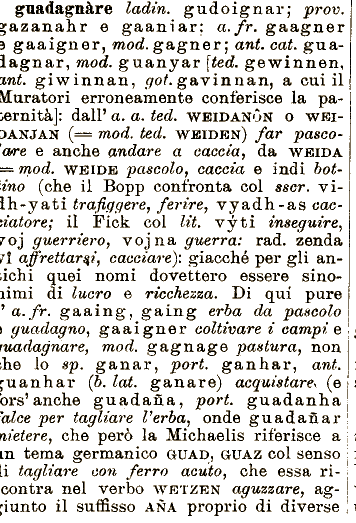 guadagnàre ladin. gudoignar; prov.
gazanahr e gaaniar; a. fr. gaagner
e gaaigner, mod. gagner; ant. cat. gua-
dagnar, mod. guanyar [ted. gewinnen,
ant. giwinnan, got. gavinnan, a cui il
Muratori erroneamente conferisce la pa-
ternità]: dall' a. a. ted. WEIDANÔN o WEI-
DANJAN (= mod. ted. WEIDEN) far pasco-
lare e anche andare a caccia, da WEIDA
= mod. WEIDE pascolo, caccia e indi bot-
tino (che il Bopp confronta col sscr. vi-
dh-yati trafiggere, ferire, vyadh-as cac-
ciatore; il Fick col lit. výti inseguire,
voj guerriero, vojna guerra: rad. zenda
vî affrettarsi, cacciare): giacché per gli an-
tichi quei nomi dovettero essere sino-
nimi di lucro e ricchezza. Di qui pure
l' a. fr. gaaing, gaing erba da pascolo
e guadagno, gaaigner coltivare i campi e
guadagnare, mod. gagnage pastura, non
che lo sp. ganar, port. ganhar, ant.
guanhar (b. lat. ganare) acquistare (e
fors' anche guadaña, port. guadanha
falce per tagliare l'erba, onde guadañar
mietere, che però la Michaelis riferisce a
un tema germanico GUAD, GUAZ col senso
di tagliare con ferro acuto, che essa ri-
scontra nel verbo WETZEN aguzzare, ag-
giunto il suffisso AÑA proprio di diverse